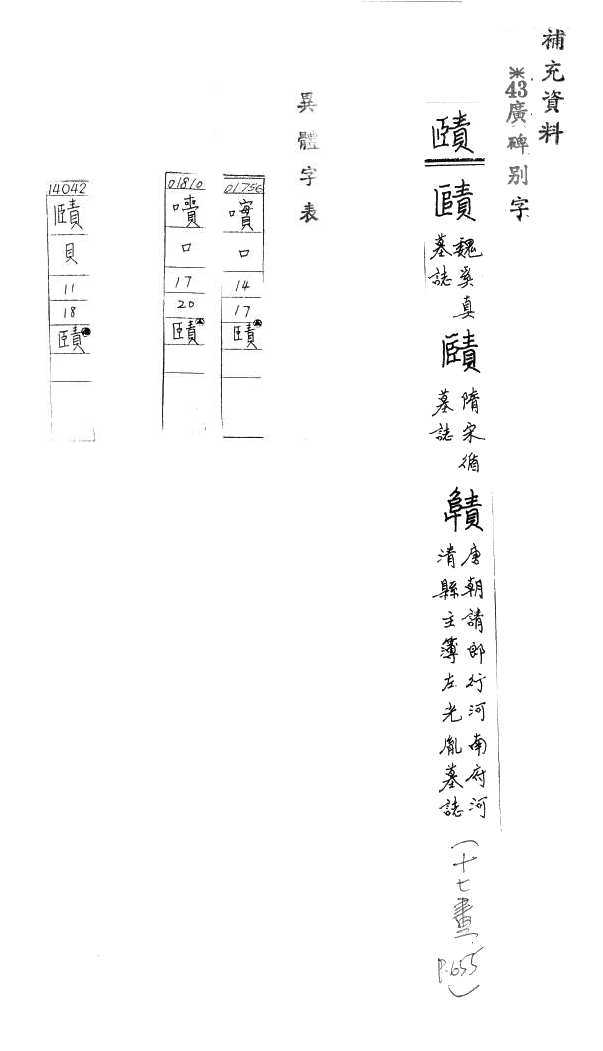 補充資料
※43廣碑別字
賾
賾
魏奚真
墓誌
賾
隋宋循
墓誌
唐朝請郎行河南府河
清縣主簿左光胤墓誌
(十七畫
P.655)
異體字表
01756
口
14
17
賾
01810
嘖
口
17
20
賾
14042
賾
貝
11
18
賾